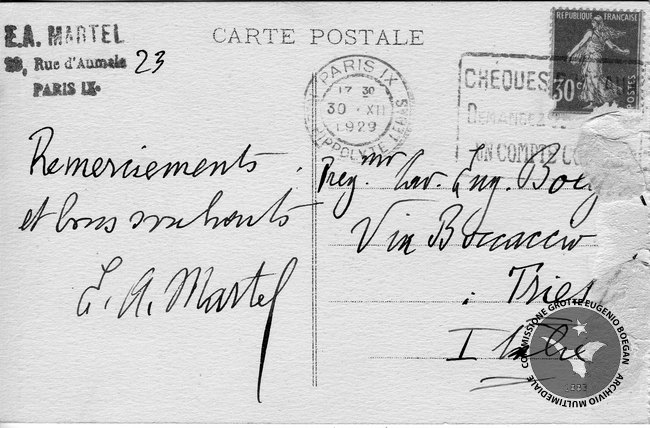 E.A. MARTEL
CARTE POSTALE
RÉPUBLIQUE FRANÇAISE
Rue d'Aumale 23
PARIS IX.
30c
POSTES
PARIS IX
17 30
30 · XII
1929
HIPPOLYTE LEBAS
CHÈQUES
DEMANDEZ
UN COMPTE
Remerciements
et bons souhaits
E. A. Martel
Preg.mo Cav. Eug. Boeg
Via Boccaccio
Tries
Italie
COMMISSIONE GROTTE EUGENIO BOEGAN
1883
ARCHIVIO MULTIMEDIALE